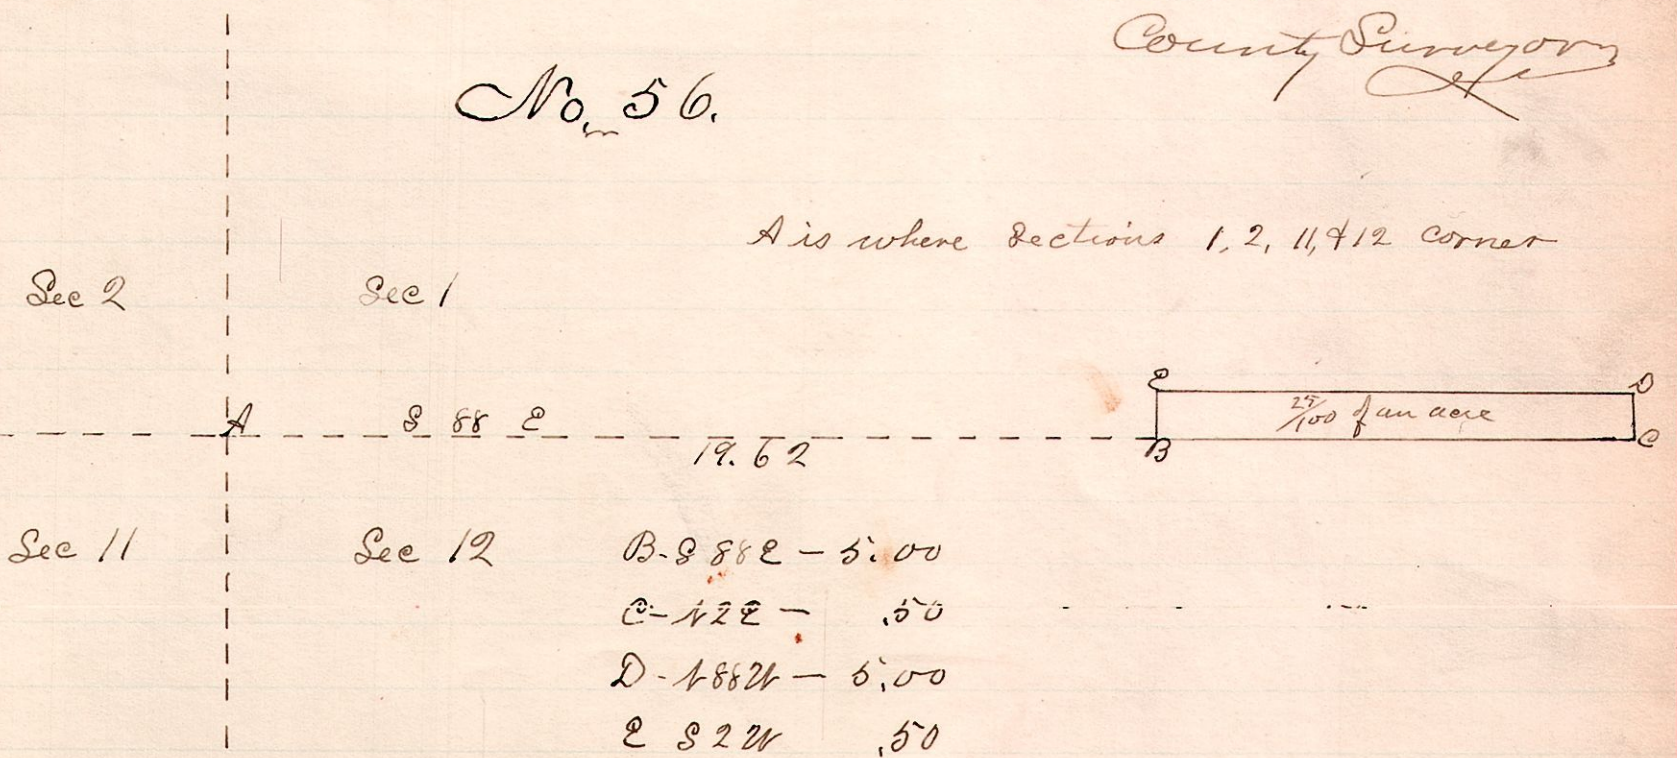 County Surveyor
No. 56.
A is where Sections 1, 2, 11, & 12 corner
Sec 2 Sec 1
E D
25/100 of an acre
A S 88 E
19.62
B C
Sec 11 Sec 12
B - S 88 E — 5.00
C - N 2 E — .50
D - N 88 W — 5.00
E S 2 W .50